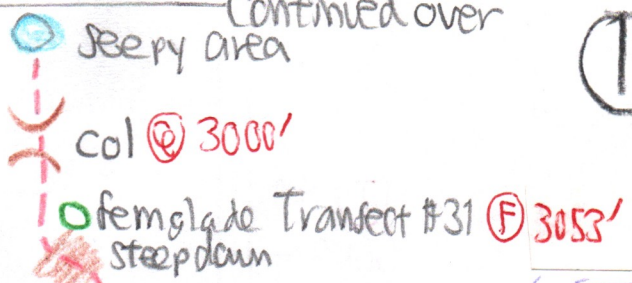 Continued over
seepy area
1
col @ 3000'
femglade Transect #31 F 3053'
steep down